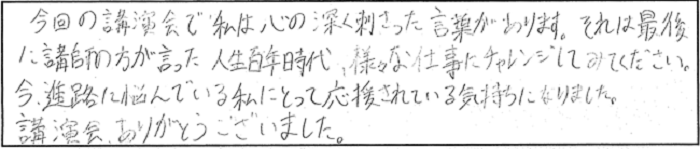 今回の講演会で私は心の深く刺さった言葉があります。それは最後
に講師の方が言った人生百年時代、様々な仕事にチャレンジしてみてください。
今、進路に悩んでいる私にとって応援されている気持ちになりました。
講演会、ありがとうございました。